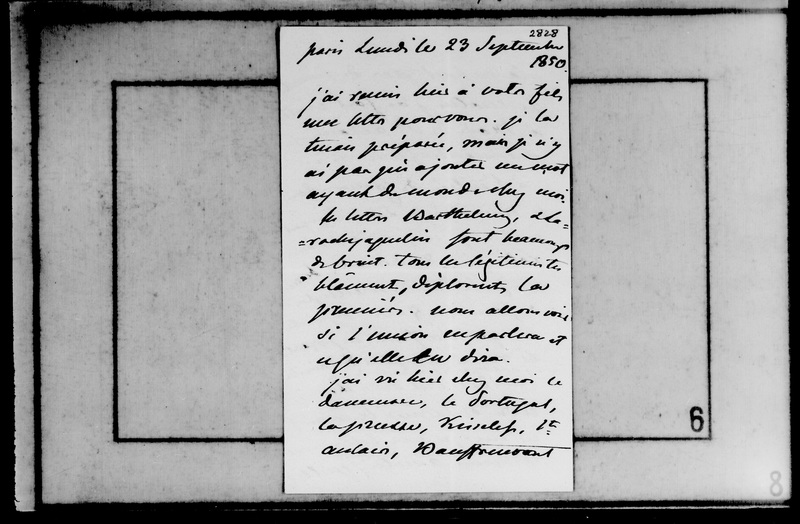 2828
Paris Lundi le 23 Septembre
1850.
j'ai remis hier à votre fils
une lettre pour vous. je la
tenais préparée, mais je n'y
ai pas pu ajouter un mot
ayant du monde chez moi.
les lettres Barthelemy, & La=
=rochejaquelin font beaucoup
de bruit. tous les légitimistes
blâment, déplorent la
première. nous allons voir
si l'union en parlera et
ce qu'elle en dira.
j'ai vu hier chez moi le
Danemarc, le Portugal,
la Prusse, Kisseleff, St
Aulaire, d'Hauffremont
6
8